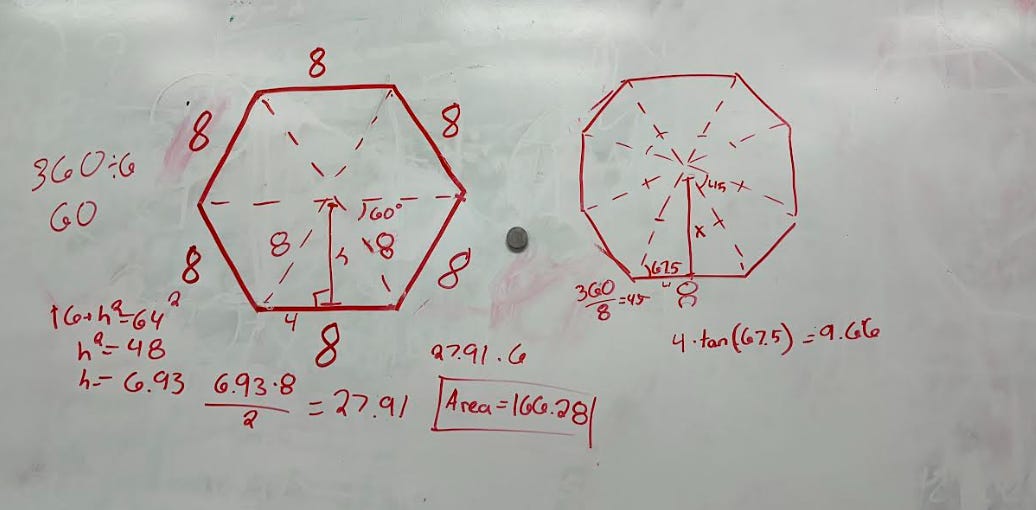 8
8
8
360÷6
60
60°
8
h
8
8
8
4
8
16+h²=64²
h²=48
h= 6.93
6.93·8
2
= 27.91
27.91 · 6
Area=166.28
45
x
67.5
4
8
360
8
=45
4·tan(67.5) = 9.66